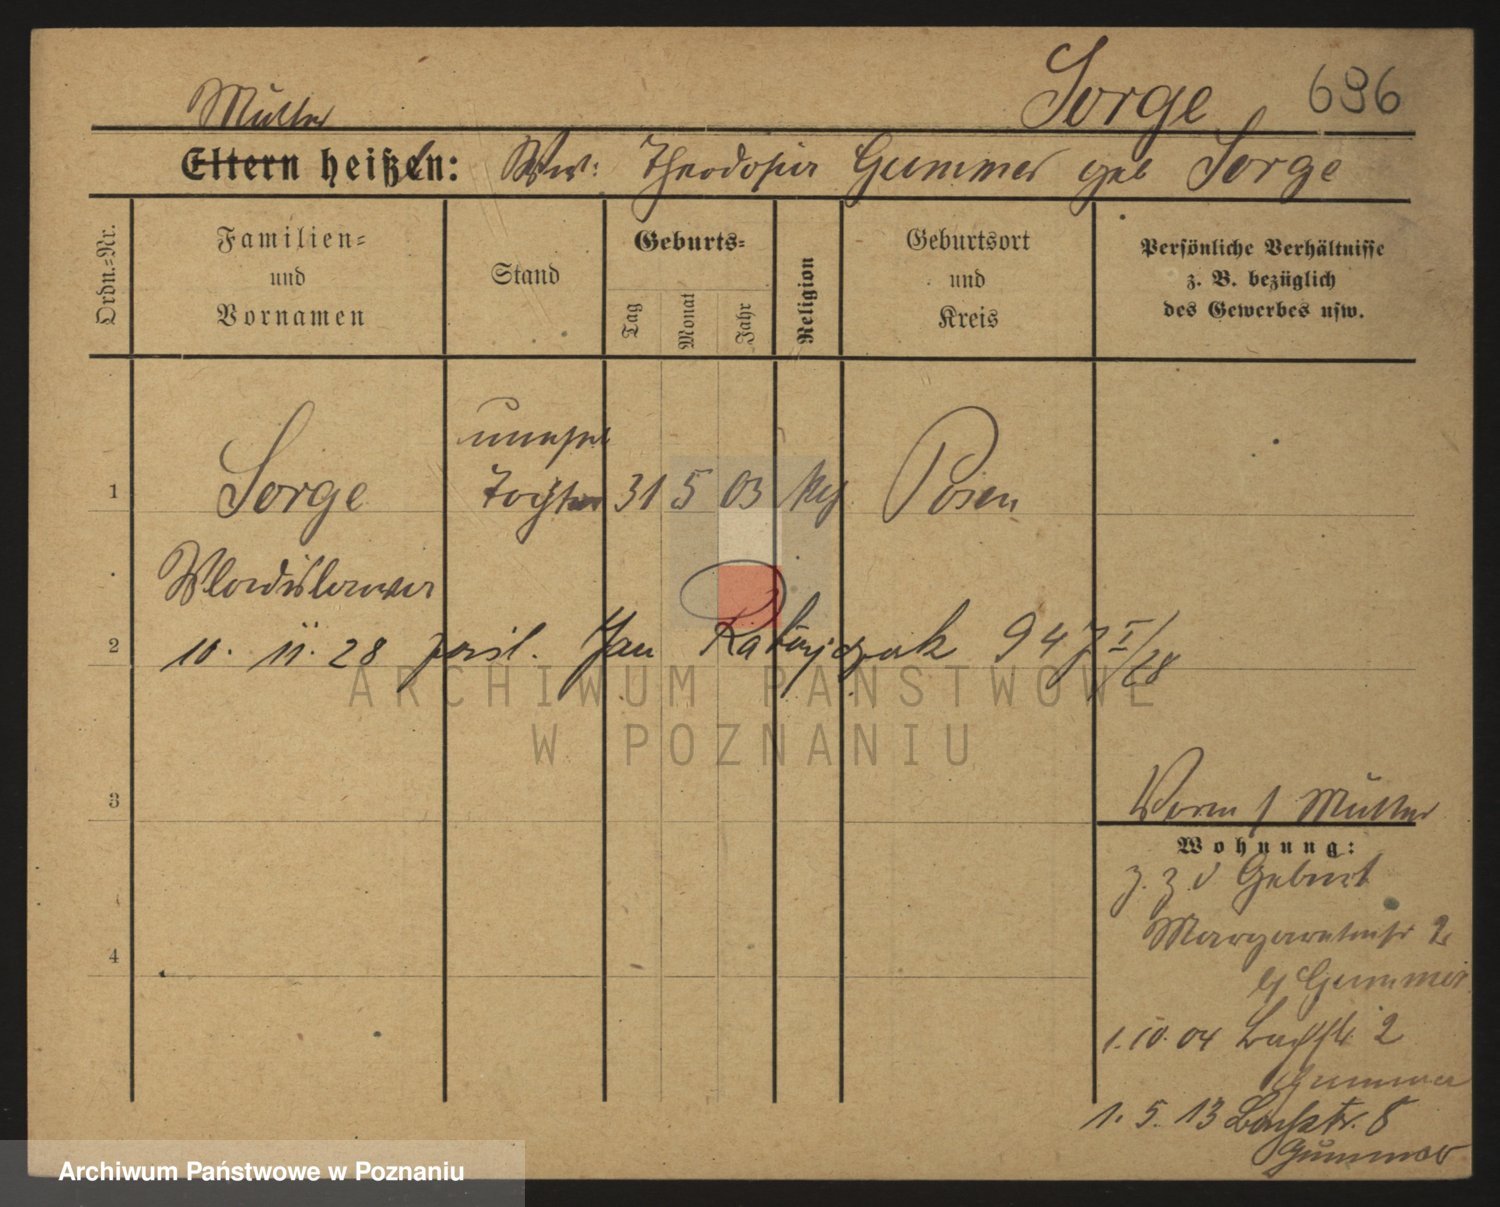 Sorge 696
Mutter
Eltern heißen: Ww: Theodosia Gummer geb Sorge
Ordn.-Nr.
Familien-
und
Vornamen
Stand
Geburts-
Tag
Monat
Jahr
Religion
Geburtsort
und
Kreis
Persönliche Verhältnisse
z. B. bezüglich
des Gewerbes usw.
unehel
1 Sorge Tochter 31 5 03 Posen
Wladislawa
2 10. 11. 28 Jan 947 I/28
3
Vorm / Mutter
Wohnung:
z. z. d Geburt
4
Margaretenstr 2
b/ Gummer
1. 10. 04 Bachstr 2
Gummer
1. 5. 13 Bachstr. 8
Gummer
ARCHIWUM PAŃSTWOWE
W POZNANIU
Archiwum Państwowe w Poznaniu